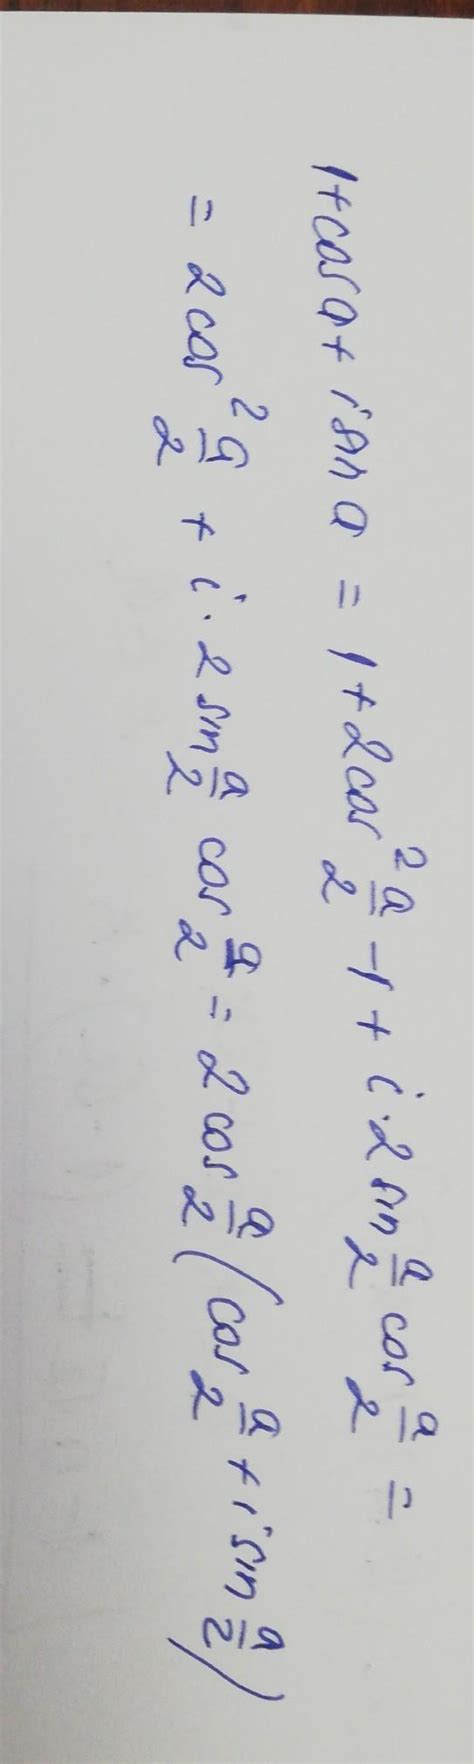 1+cos a + i sin a = 1 + 2cos² a/2 - 1 + i · 2 sin a/2 cos a/2 =
= 2cos² a/2 + i · 2 sin a/2 cos a/2 = 2cos a/2 (cos a/2 + i sin a/2)